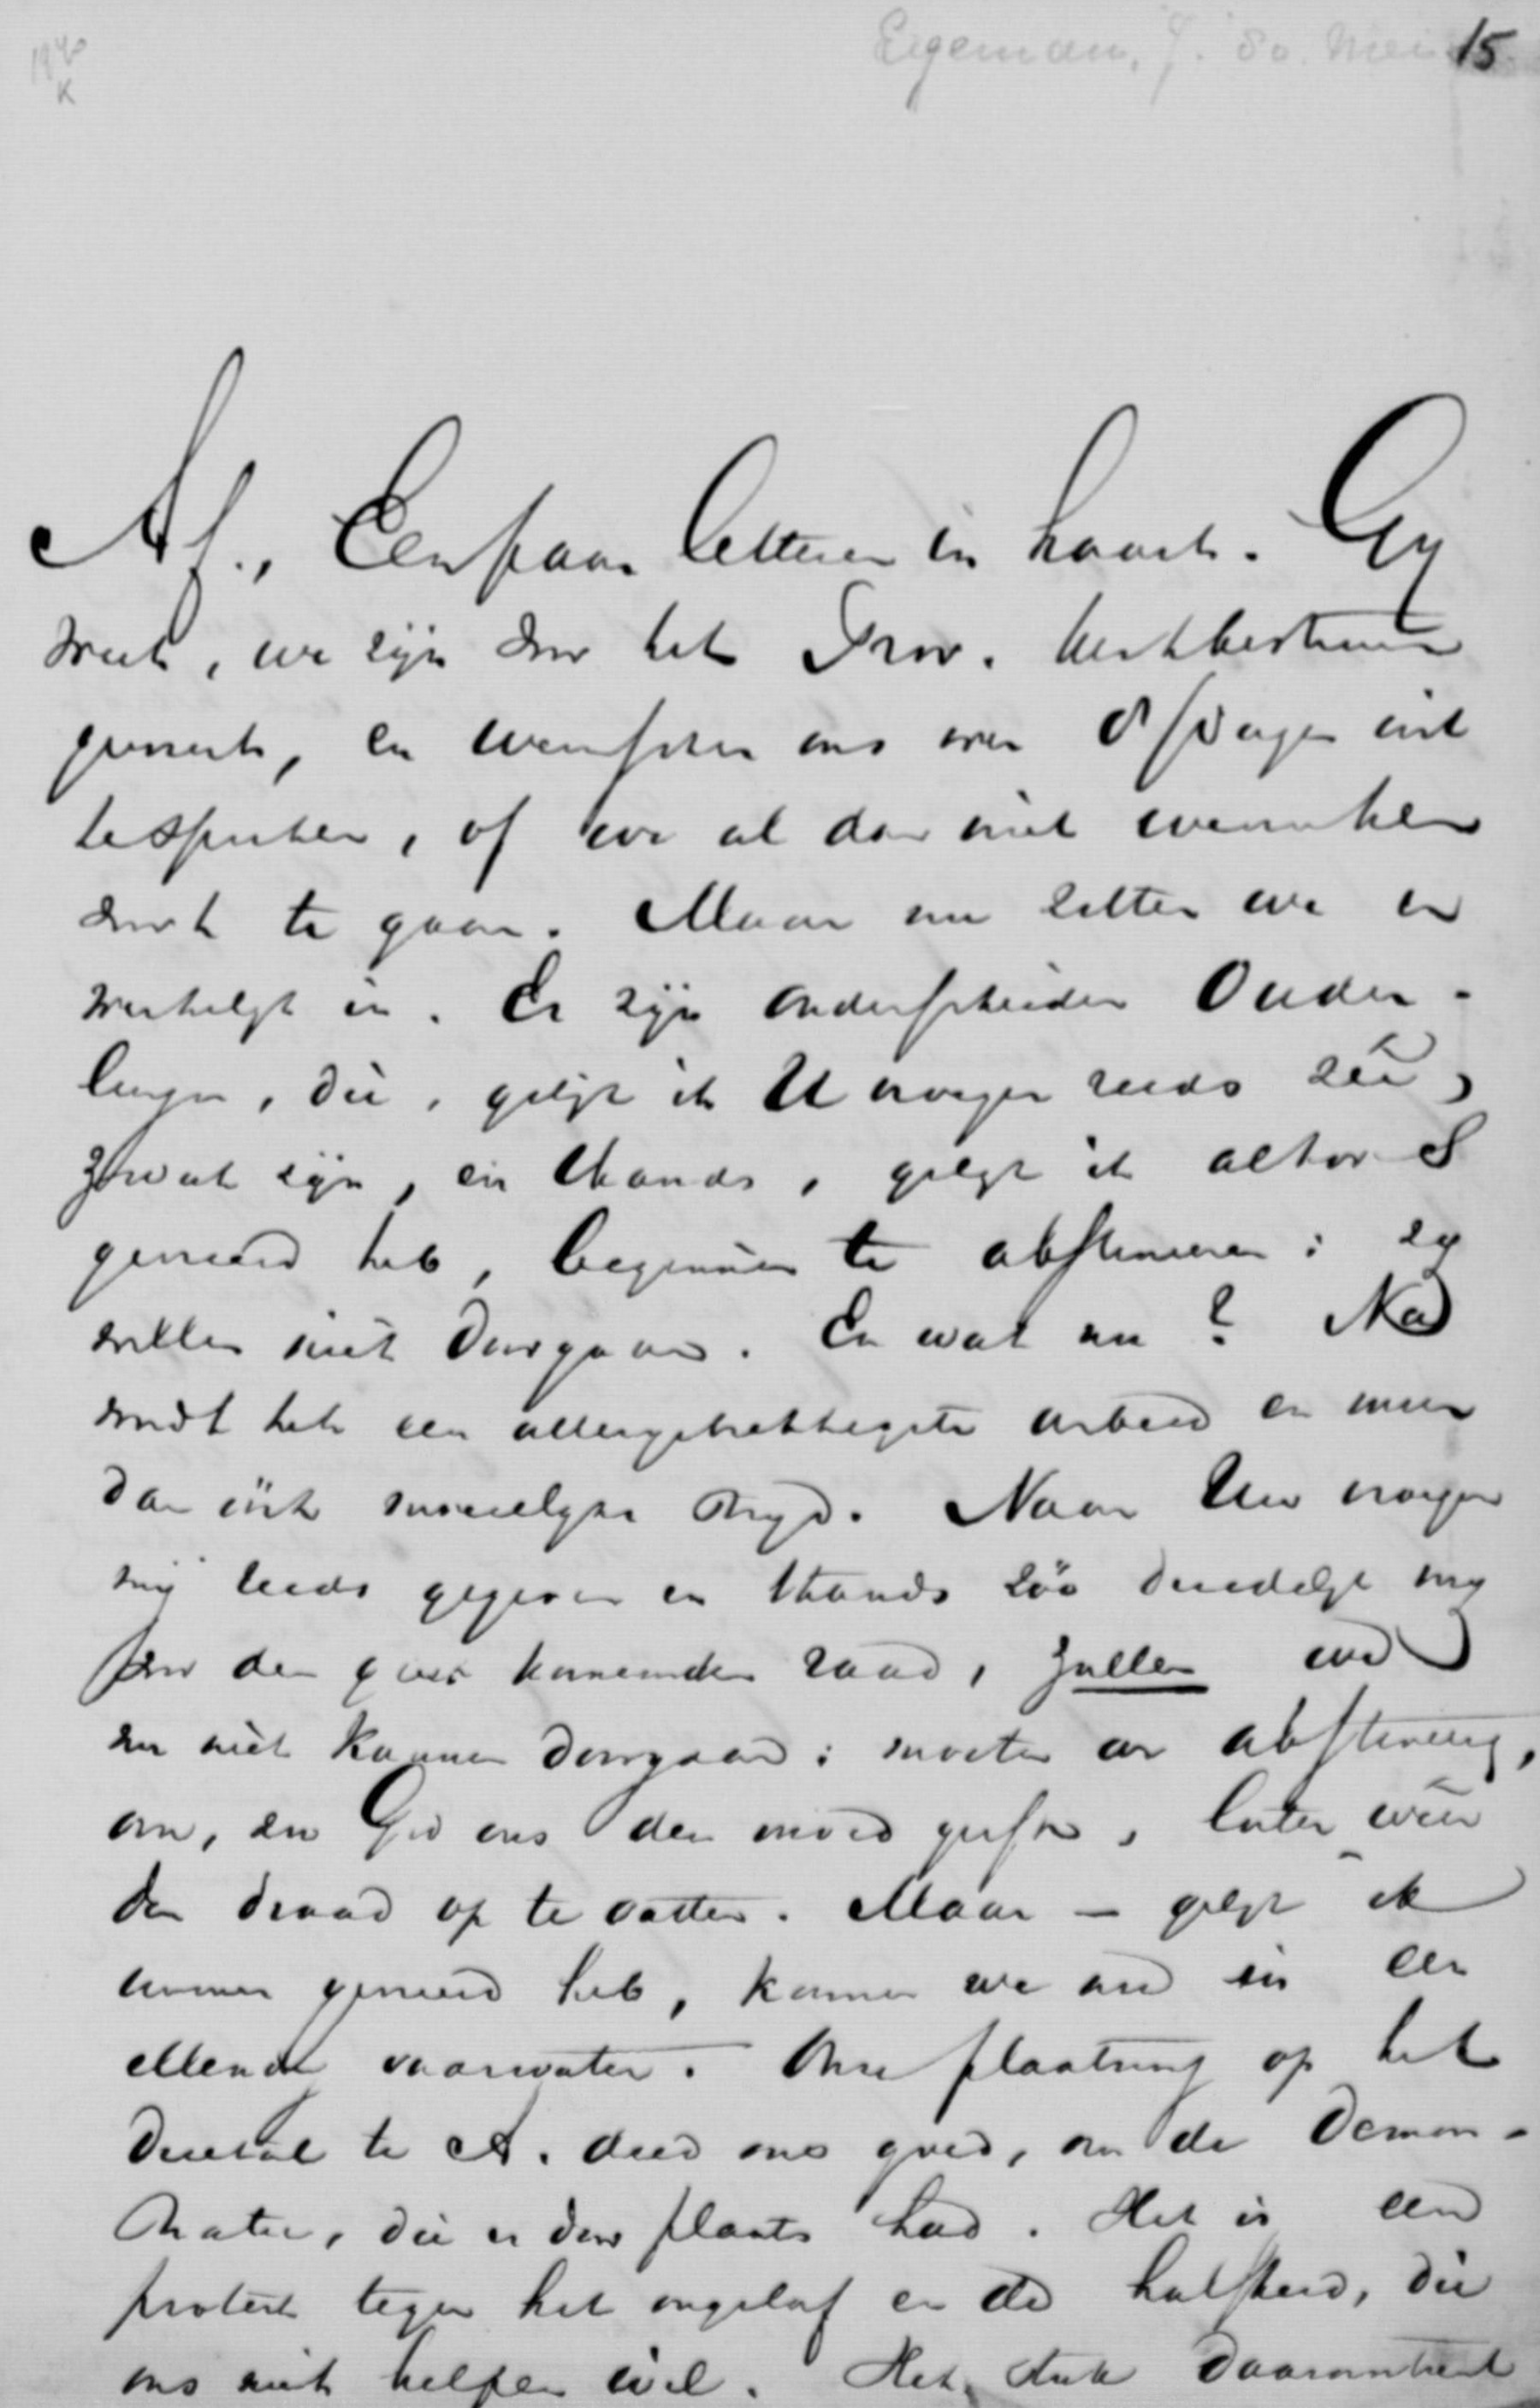 Eigeman, J. 30. Mei 15
K
Af., Een paar letteren in haast. Gy
weet, we zijn door het Prov. Kerkbestuur
gewenst, en wenschen ons over 8 dagen uit
te spreken, of we al dan niet wenschen
door te gaan. Maar nu zitten we er
werkelijk in. Er zijn onderscheiden Ouder-
lingen, die, gelijk ik U vroeger reeds zei,
zwak zijn, en thands, gelijk ik altoos
gemeend heb, beginnen te absteneren: zy
willen niet doorgaan. En wat nu? Na
ruim het een allergebrekkigste arbeid en meer
dan één moeielyke stryd. Naar Uw vroeger
mij reeds gegeven en thands zóó duidelijk my
voor den geest komenden raad, zullen we
zoo niet kunnen doorgaan: moeten we abstineeren,
om, zoo God ons den moed geeft, later weer
den draad op te vatten. Maar — gelijk ik
immer gemeend heb, komen we nu in een
ellendig vaarwater. Onze plaatsing op het
drietal te A. deed ons goed, om de Demon-
stratie, die er door plaats had. Het is een
protest tegen het ongeloof en de halfheid, die
ons niet helpen wil. Het stuk daaromtrent